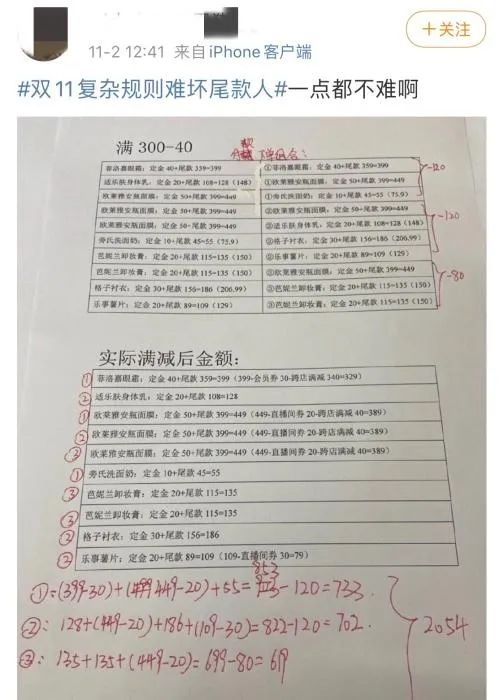 +关注
11-2 12:41 来自iPhone客户端
#双11复杂规则难坏尾款人#一点都不难啊
满 300-40
下单组合：
菲洛嘉眼霜：定金 40+尾款 359=399
①菲洛嘉眼霜：定金 40+尾款 359=399
-120
适乐肤身体乳：定金 20+尾款 108=128（148）
①欧莱雅安瓶面膜：定金 50+尾款 399=449
欧莱雅安瓶面膜：定金 50+尾款 399=449
①旁氏洗面奶：定金 10+尾款 45=55（75.9）
欧莱雅安瓶面膜：定金 50+尾款 399=449
②欧莱雅安瓶面膜：定金 50+尾款 399=449
-120
欧莱雅安瓶面膜：定金 50+尾款 399=449
②适乐肤身体乳：定金 20+尾款 108=128（148）
旁氏洗面奶：定金 10+尾款 45=55（75.9）
②格子衬衣：定金 30+尾款 156=186（206.99）
芭妮兰卸妆膏：定金 20+尾款 115=135（150）
②乐事薯片：定金 20+尾款 89=109（129）
芭妮兰卸妆膏：定金 20+尾款 115=135（150）
③欧莱雅安瓶面膜：定金 50+尾款 399=449
-80
格子衬衣：定金 30+尾款 156=186（206.99）
③芭妮兰卸妆膏：定金 20+尾款 115=135（150）
乐事薯片：定金 20+尾款 89=109（129）
③芭妮兰卸妆膏：定金 20+尾款 115=135（150）
实际满减后金额：
① 菲洛嘉眼霜：定金 40+尾款 359=399（399-会员券 30-跨店满减 340=329）
② 适乐肤身体乳：定金 20+尾款 108=128
① 欧莱雅安瓶面膜：定金 50+尾款 399=449（449-直播间券 20-跨店满减 40=389）
② 欧莱雅安瓶面膜：定金 50+尾款 399=449（449-直播间券 20-跨店满减 40=389）
欧莱雅安瓶面膜：定金 50+尾款 399=449（449-直播间券 20-跨店满减 40=389）
① 旁氏洗面奶：定金 10+尾款 45=55
③ 芭妮兰卸妆膏：定金 20+尾款 115=135
③ 芭妮兰卸妆膏：定金 20+尾款 115=135
② 格子衬衣：定金 30+尾款 156=186
② 乐事薯片：定金 20+尾款 89=109（109-直播间券 30=79）
853
①=(399-30)+(449-20)+55=-120=733
②：128+(449-20)+186+(109-30)=822-120=702.
2054
③：135+135+(449-20)=699-80=619